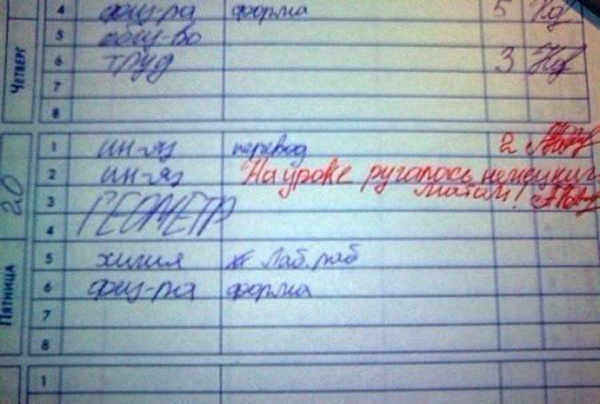 ЧЕТВЕРГ
4 физ-ра форма 5
5 общ-во
6 ТРУД 3
7
8
20
ПЯТНИЦА
1 ин-яз перевод 2
2 ин-яз На уроке ругалось немецким
матом!
3 ГЕОМЕТР
4
5 химия Лаб. раб
6 физ-ра форма
7
8
1